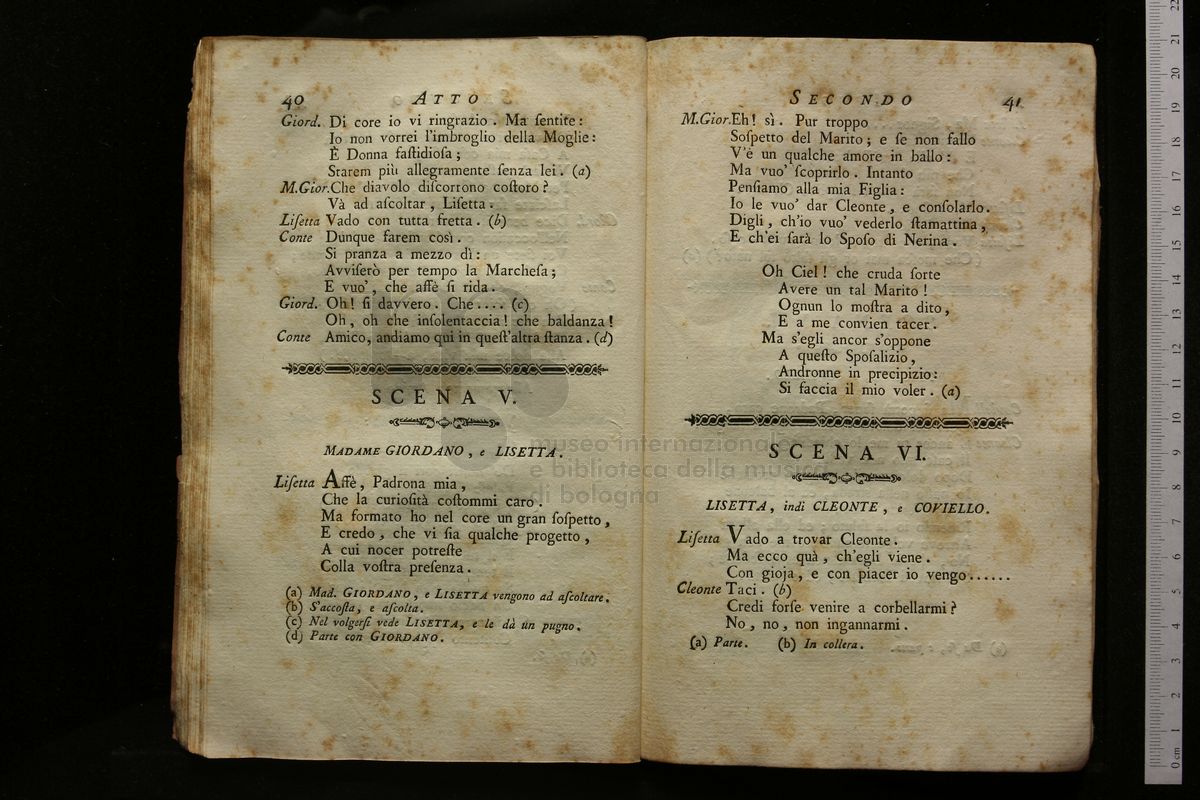 40 ATTO
Giord. Di core io vi ringrazio. Ma ſentite:
Io non vorrei l'imbroglio della Moglie:
È Donna faſtidioſa;
Starem più allegramente ſenza lei. (a)
M.Gior. Che diavolo diſcorrono coſtoro?
Và ad aſcoltar, Liſetta.
Liſetta Vado con tutta fretta. (b)
Conte Dunque farem così.
Si pranza a mezzo dì:
Avviſerò per tempo la Marcheſa;
E vuo', che affè ſi rida.
Giord. Oh! ſì davvero. Che.... (c)
Oh, oh che inſolentaccia! che baldanza!
Conte Amico, andiamo quì in queſt'altra ſtanza. (d)
SCENA V.
MADAME GIORDANO, e LISETTA.
Liſetta Affè, Padrona mia,
Che la curioſità coſtommi caro.
Ma formato ho nel core un gran ſoſpetto,
E credo, che vi ſia qualche progetto,
A cui nocer potreſte
Colla voſtra preſenza.
(a) Mad. GIORDANO, e LISETTA vengono ad aſcoltare.
(b) S'accoſta, e aſcolta.
(c) Nel volgerſi vede LISETTA, e le dà un pugno.
(d) Parte con GIORDANO.
SECONDO 41
M.Gior. Eh! sì. Pur troppo
Soſpetto del Marito; e ſe non fallo
V'è un qualche amore in ballo:
Ma vuo' ſcoprirlo. Intanto
Penſiamo alla mia Figlia:
Io le vuo' dar Cleonte, e conſolarlo.
Digli, ch'io vuo' vederlo ſtamattina,
E ch'ei ſarà lo Spoſo di Nerina.
Oh Ciel! che cruda ſorte
Avere un tal Marito!
Ognun lo moſtra a dito,
E a me convien tacer.
Ma s'egli ancor s'oppone
A queſto Spoſalizio,
Andronne in precipizio:
Si faccia il mio voler. (a)
SCENA VI.
LISETTA, indi CLEONTE, e COVIELLO.
Liſetta Vado a trovar Cleonte.
Ma ecco quà, ch'egli viene.
Con gioja, e con piacer io vengo......
Cleonte Taci. (b)
Credi forſe venire a corbellarmi?
No, no, non ingannarmi.
(a) Parte. (b) In collera.
museo internazionale
e biblioteca della musica
di bologna